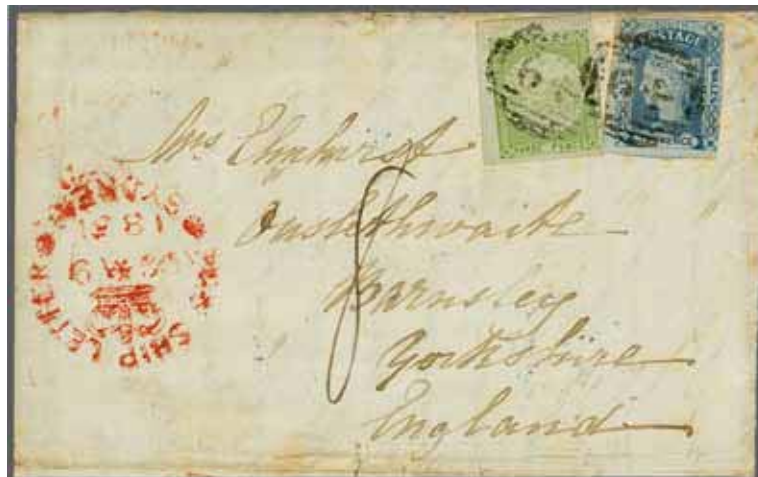 POSTAGE
Mrs Elmhirst
Ouslethwaite
Barnsley
Yorkshire
England
8
SHIP LETTER
SYDNEY
1851